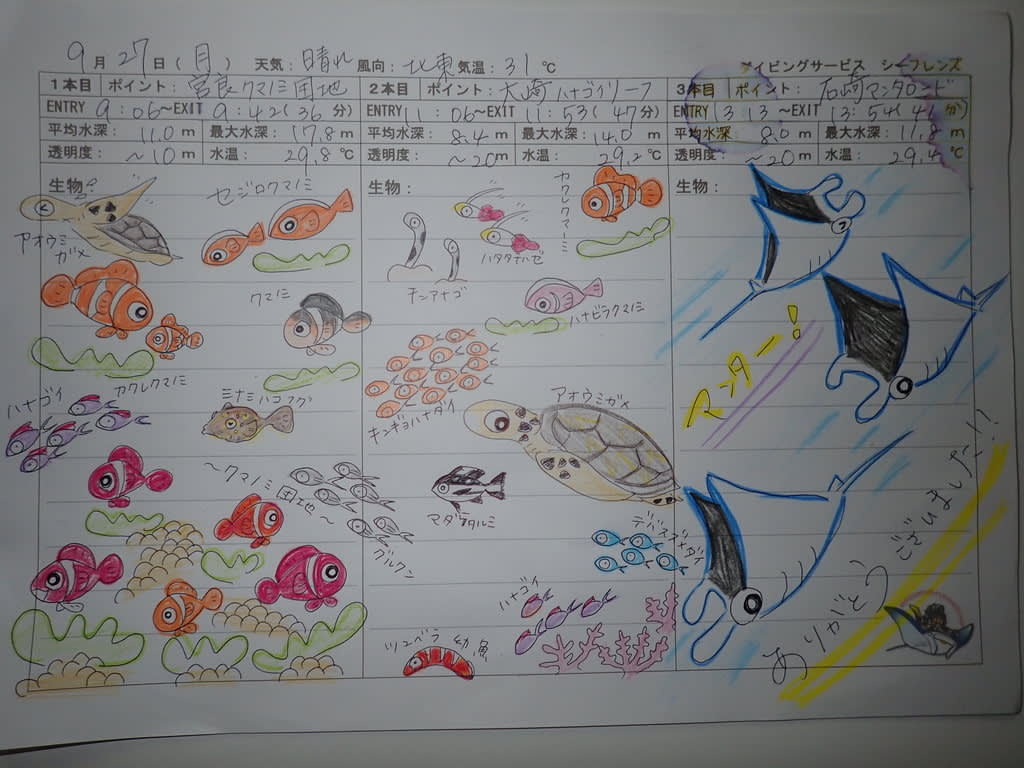 9月27日(月) 天気:晴れ 風向:北東 気温:31℃ ダイビングサービス シーフレンズ
1本目 ポイント:宮良クマノミ団地
ENTRY 9:06~EXIT 9:42(36分)
平均水深: 11.0m 最大水深: 17.8m
透明度: ~10m 水温: 29.8℃
生物:
アオウミガメ
セジロクマノミ
クマノミ
カクレクマノミ
ハナゴイ
ミナミハコフグ
~クマノミ団地~
グルクン
2本目 ポイント:大崎ハナゴイリーフ
ENTRY 11:06~EXIT 11:53(47分)
平均水深: 8.4m 最大水深: 14.0m
透明度: ~20m 水温: 29.2℃
生物:
カクレクマノミ
ハタタテハゼ
チンアナゴ
ハナビラクマノミ
キンギョハナダイ
アオウミガメ
マダラタルミ
デバスズメダイ
ハナゴイ
ツユベラ幼魚
3本目 ポイント:石崎マンタロード
ENTRY 13:13~EXIT 13:54(41分)
平均水深: 8.0m 最大水深: 11.8m
透明度: ~20m 水温: 29.4℃
生物:
マンター!
ありがとう
ございました!!